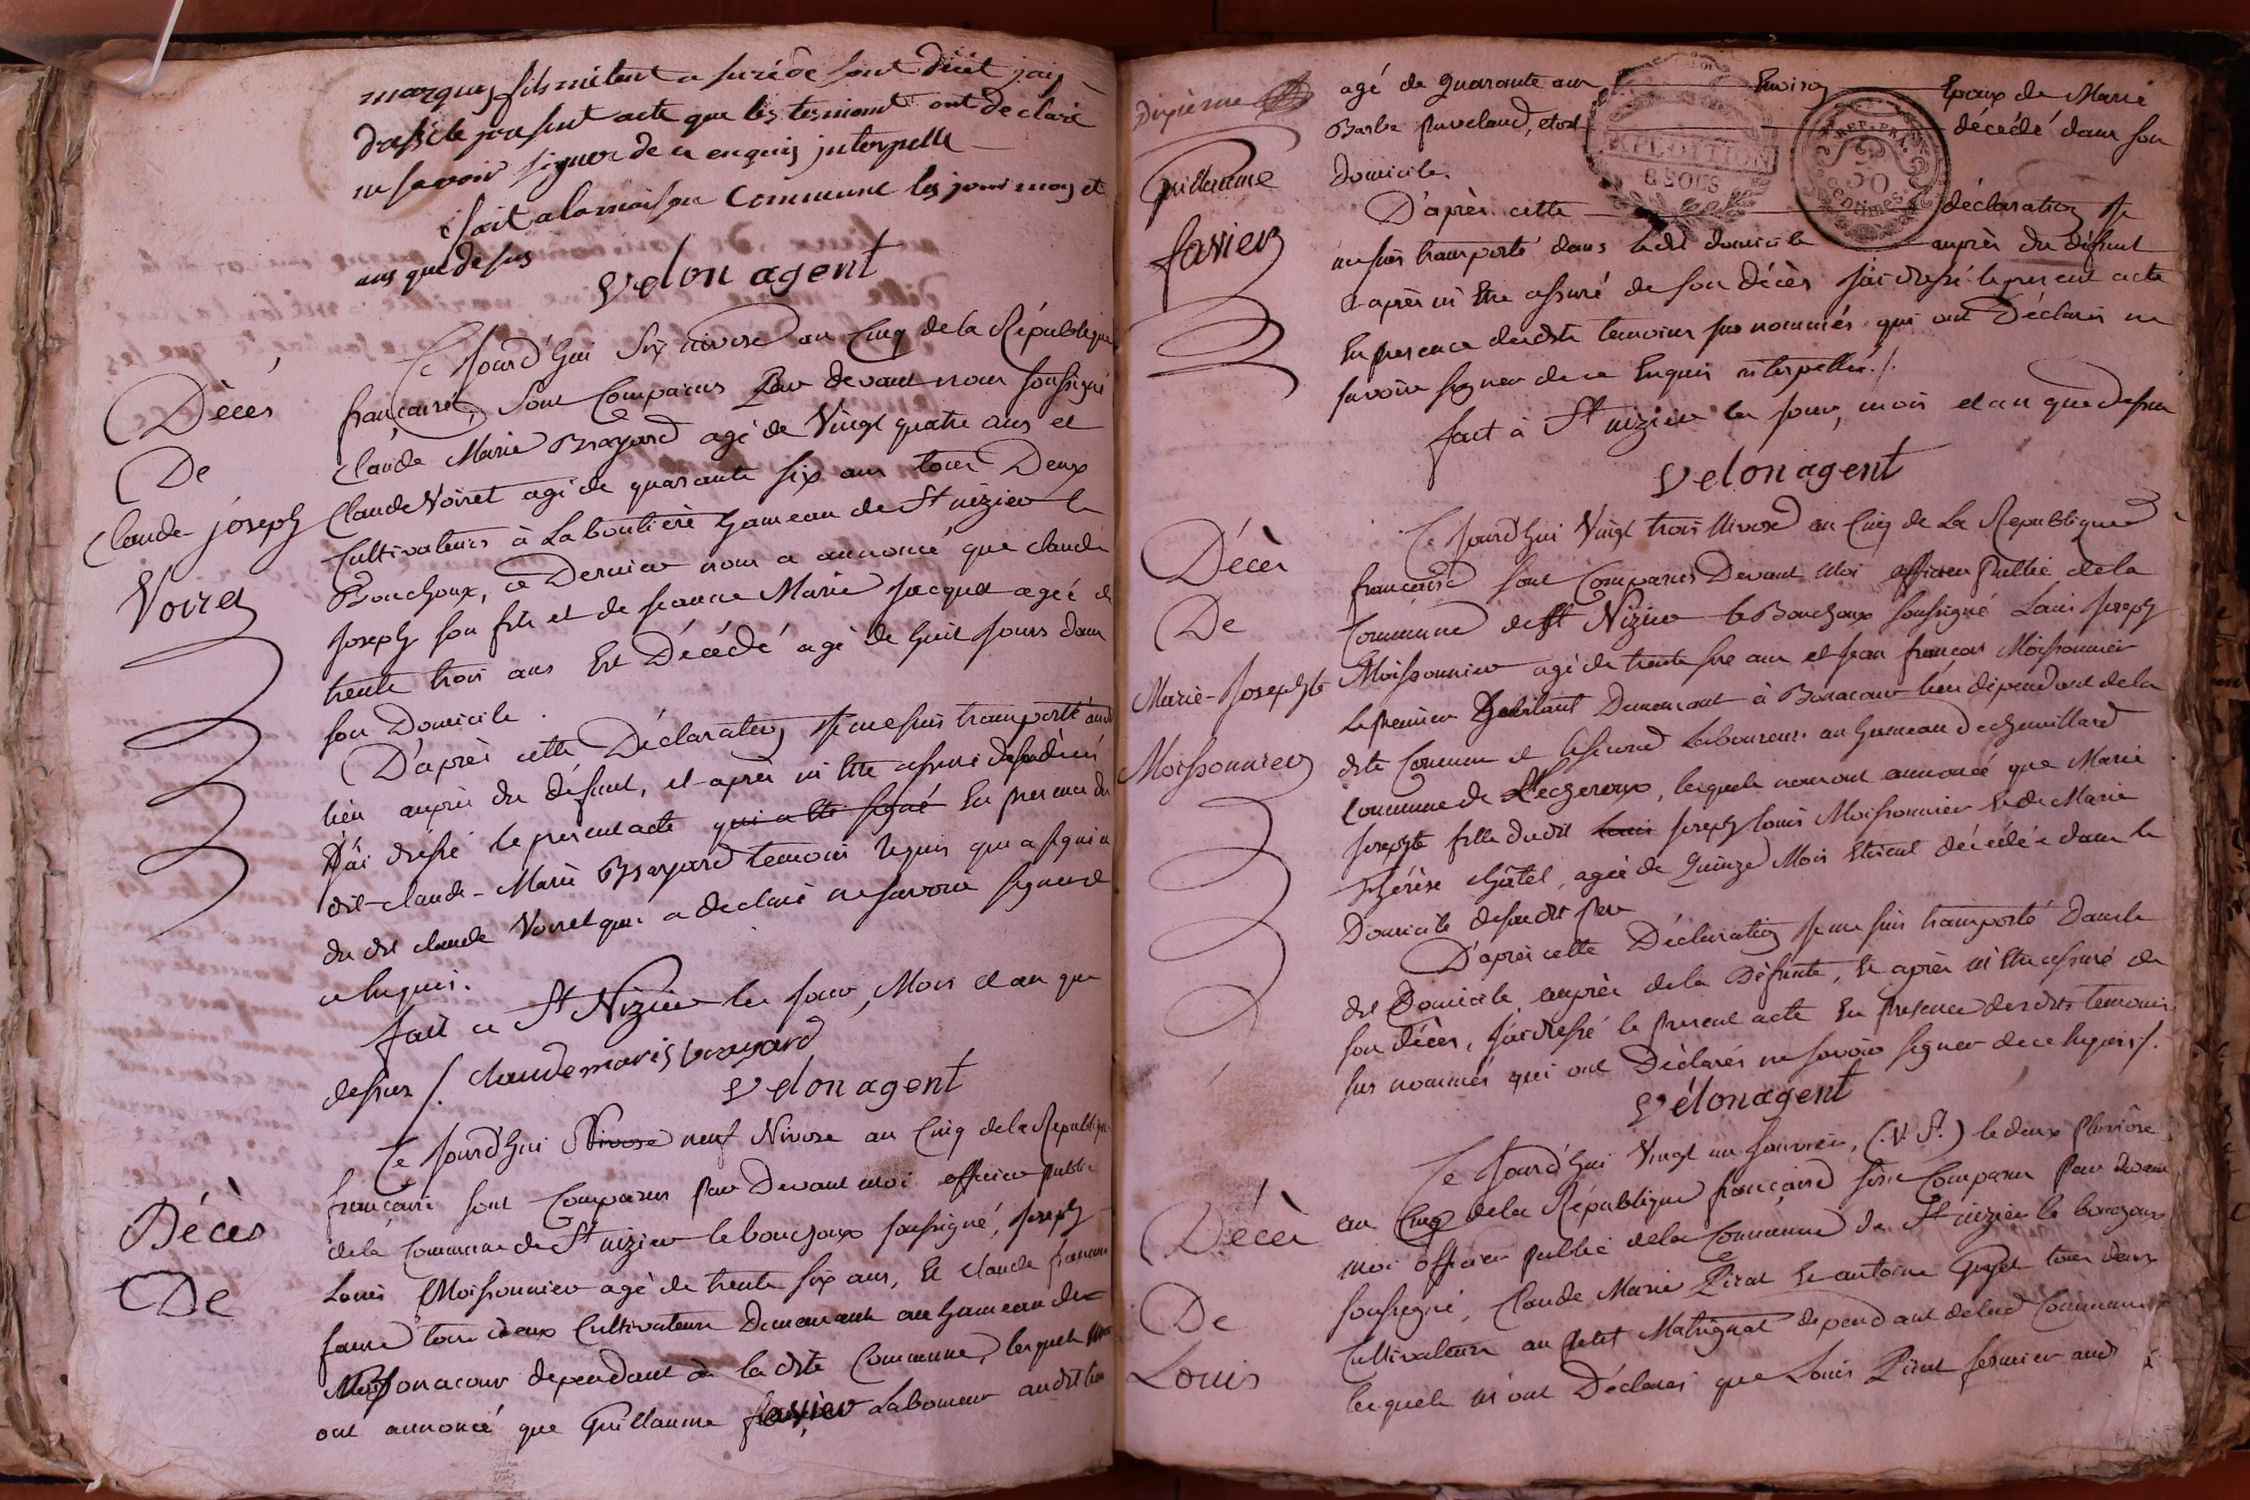 marques fils métent a suréde sont dicit jai
dréssé le present acte que les temoint ont declaré
ne savoir signer de ce enquis interpellé
fait a la maison Commune les jour moy et
ans que desus
velon agent
Ce Jourd'hui six nivose an Cinq de la République
française, sont Comparus Par devant nous soussigné
Claude Marie Brayard agé de Vingt quatre ans et
Claude Voiret agé de quarante six ans tous Deux
Cultivateurs à La boutiere hameau de St nizier le
Bouchoux, ce Dernier nous a annoncé que claude
Joseph son fils et de jeanne Marie jacquet agée de
trente trois ans Est Décédé agé de huit jours dans
son Domicile.
D'après cette Déclaration Je me suis transporté audit
lieu auprès du défunt, et après m'être assuré de son décès
J'ai dréssé le present acte qui a été signé En presence du
dit claude-Marie Brayard temoin requis qui a signé et
du dit claude Voiret qui a déclaré ne savoir signer de
ce Enquis.
fait a St Nizier les jour, Mois et an que
dessus /. claude maris brayard
velon agent
Décés
De
Claude-joseph
Voiret
Ce Jourd'hui Nivose neuf Nivose an Cinq de la République
française sont Comparus par Devant moi officier public
de la Commune de St nizier le bouchoux soussigné, Joseph
Louis Moissonnier agé de trente six ans, Et Claude françois
faure tous deux Cultivateurs Demeurant au hameau de
Bonacour dependant de la dite Commune, lesquels nous
ont annoncé que Guillaume favier Laboureur audit lieu
Décès
De
Dixième
Guillaume
favier
agé de quarante ans Environ Epoux de Marie
Barbe paveland, est décédé dans son
domicile.
EXPEDITION
8 SOLS
REP. FRA.
50
centimes
D'après cette déclaration Je
me suis transporté dans le dit domicile auprès du défunt
et après m'être assuré de son décès J'ai dressé le present acte
En presence desdits temoins sus nommés qui ont Déclarés ne
savoir signer de ce Enquis interpellés./.
fait à St nizier les jour, mois et an que dessus
velon agent
Ce Jourd'hui Vingt trois Nivose an Cinq de La Republique
française sont Comparus Devant Moi officier Public de la
Commune de St Nizier le Bouchoux soussigné Louis Joseph
Moissonnier agé de trente six ans et jean françois Moissonnier
Le premier habitant Demeurant à Bonacour lieu dépendant de la
dite Commune et le second Laboureur au hameau de
Commune de Lescheroux, lesquels nous ont annoncé que Marie
Josephte fille dudit Louis Joseph Louis Moissonnier et de Marie
Thérèse Châtel, agée de Quinze Mois étoient décédée dans le
Domicile de son dit père
D'après cette Déclaration Je me suis transporté Dans le
dit Domicile, auprès de la Défunte, Et après m'être assuré de
son décès, J'ai dressé le present acte En presence desdits temoins
sus nommés qui ont Déclarés ne savoir signer de ce Enquis/.
vélon agent
Décès
De
Marie-Josephte
Moissonnier
Ce Jourd'hui Vingt un Janvier, (V. S.) le deux Pluviôse
an Cinq de la République française sont Comparus par devant
moi officier public de la Commune de St nizier le bouchoux
soussigné, Claude Marie Pirat Et antoine Guyet tous deux
Cultivateurs au petit Matrignat dependant de la d Commune
lesquels m'ont Déclarés que Louis Pirat fermier aud
Décès
De
Louis